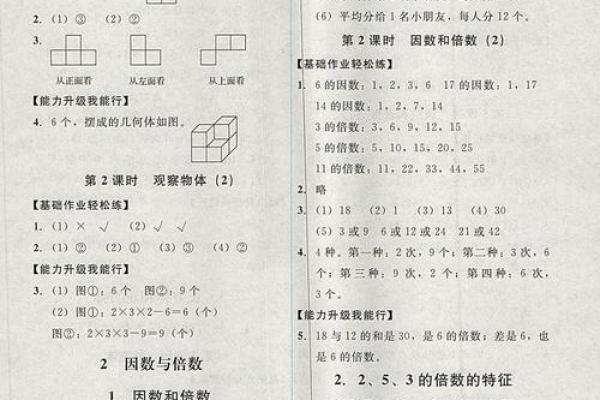 2. (1) ③ (2) ②
3.
从正面看 从左面看 从上面看
【能力升级我能行】
4. 6个，摆成的几何体如图。
第2课时 观察物体(2)
【基础作业轻松练】
1. (1) × √ (2) √ √
2. (1) ② (2) ① (3) ③ (4) ②
【能力升级我能行】
3. (1) 图①：6个 图②：9个
(2) 图①：2×3×2－6＝6(个)
图②：2×3×3－9＝9(个)
2 因数与倍数
1 因数和倍数
(6) 平均分给1名小朋友，每人分12个。
第2课时 因数和倍数(2)
【基础作业轻松练】
1. 6的因数：1，2，3，6 17的因数：1，17
14的因数：1，2，7，14
3的倍数：3，6，9，12，15
5的倍数：5，10，15，20，25
11的倍数：11，22，33，44，55
2. 略
3. (1) 18 (2) 1 (3) 13 (4) 30
(5) 3或9 6或12或24 21或42
4. 4种。第一种：2次，9个；第二种：3次，6
个；第三种：9次，2个；第四种：6次，
3个。
【能力升级我能行】
5. 18与12的和是30，是6的倍数；差是6，也
是6的倍数。
2. 2、5、3的倍数的特征